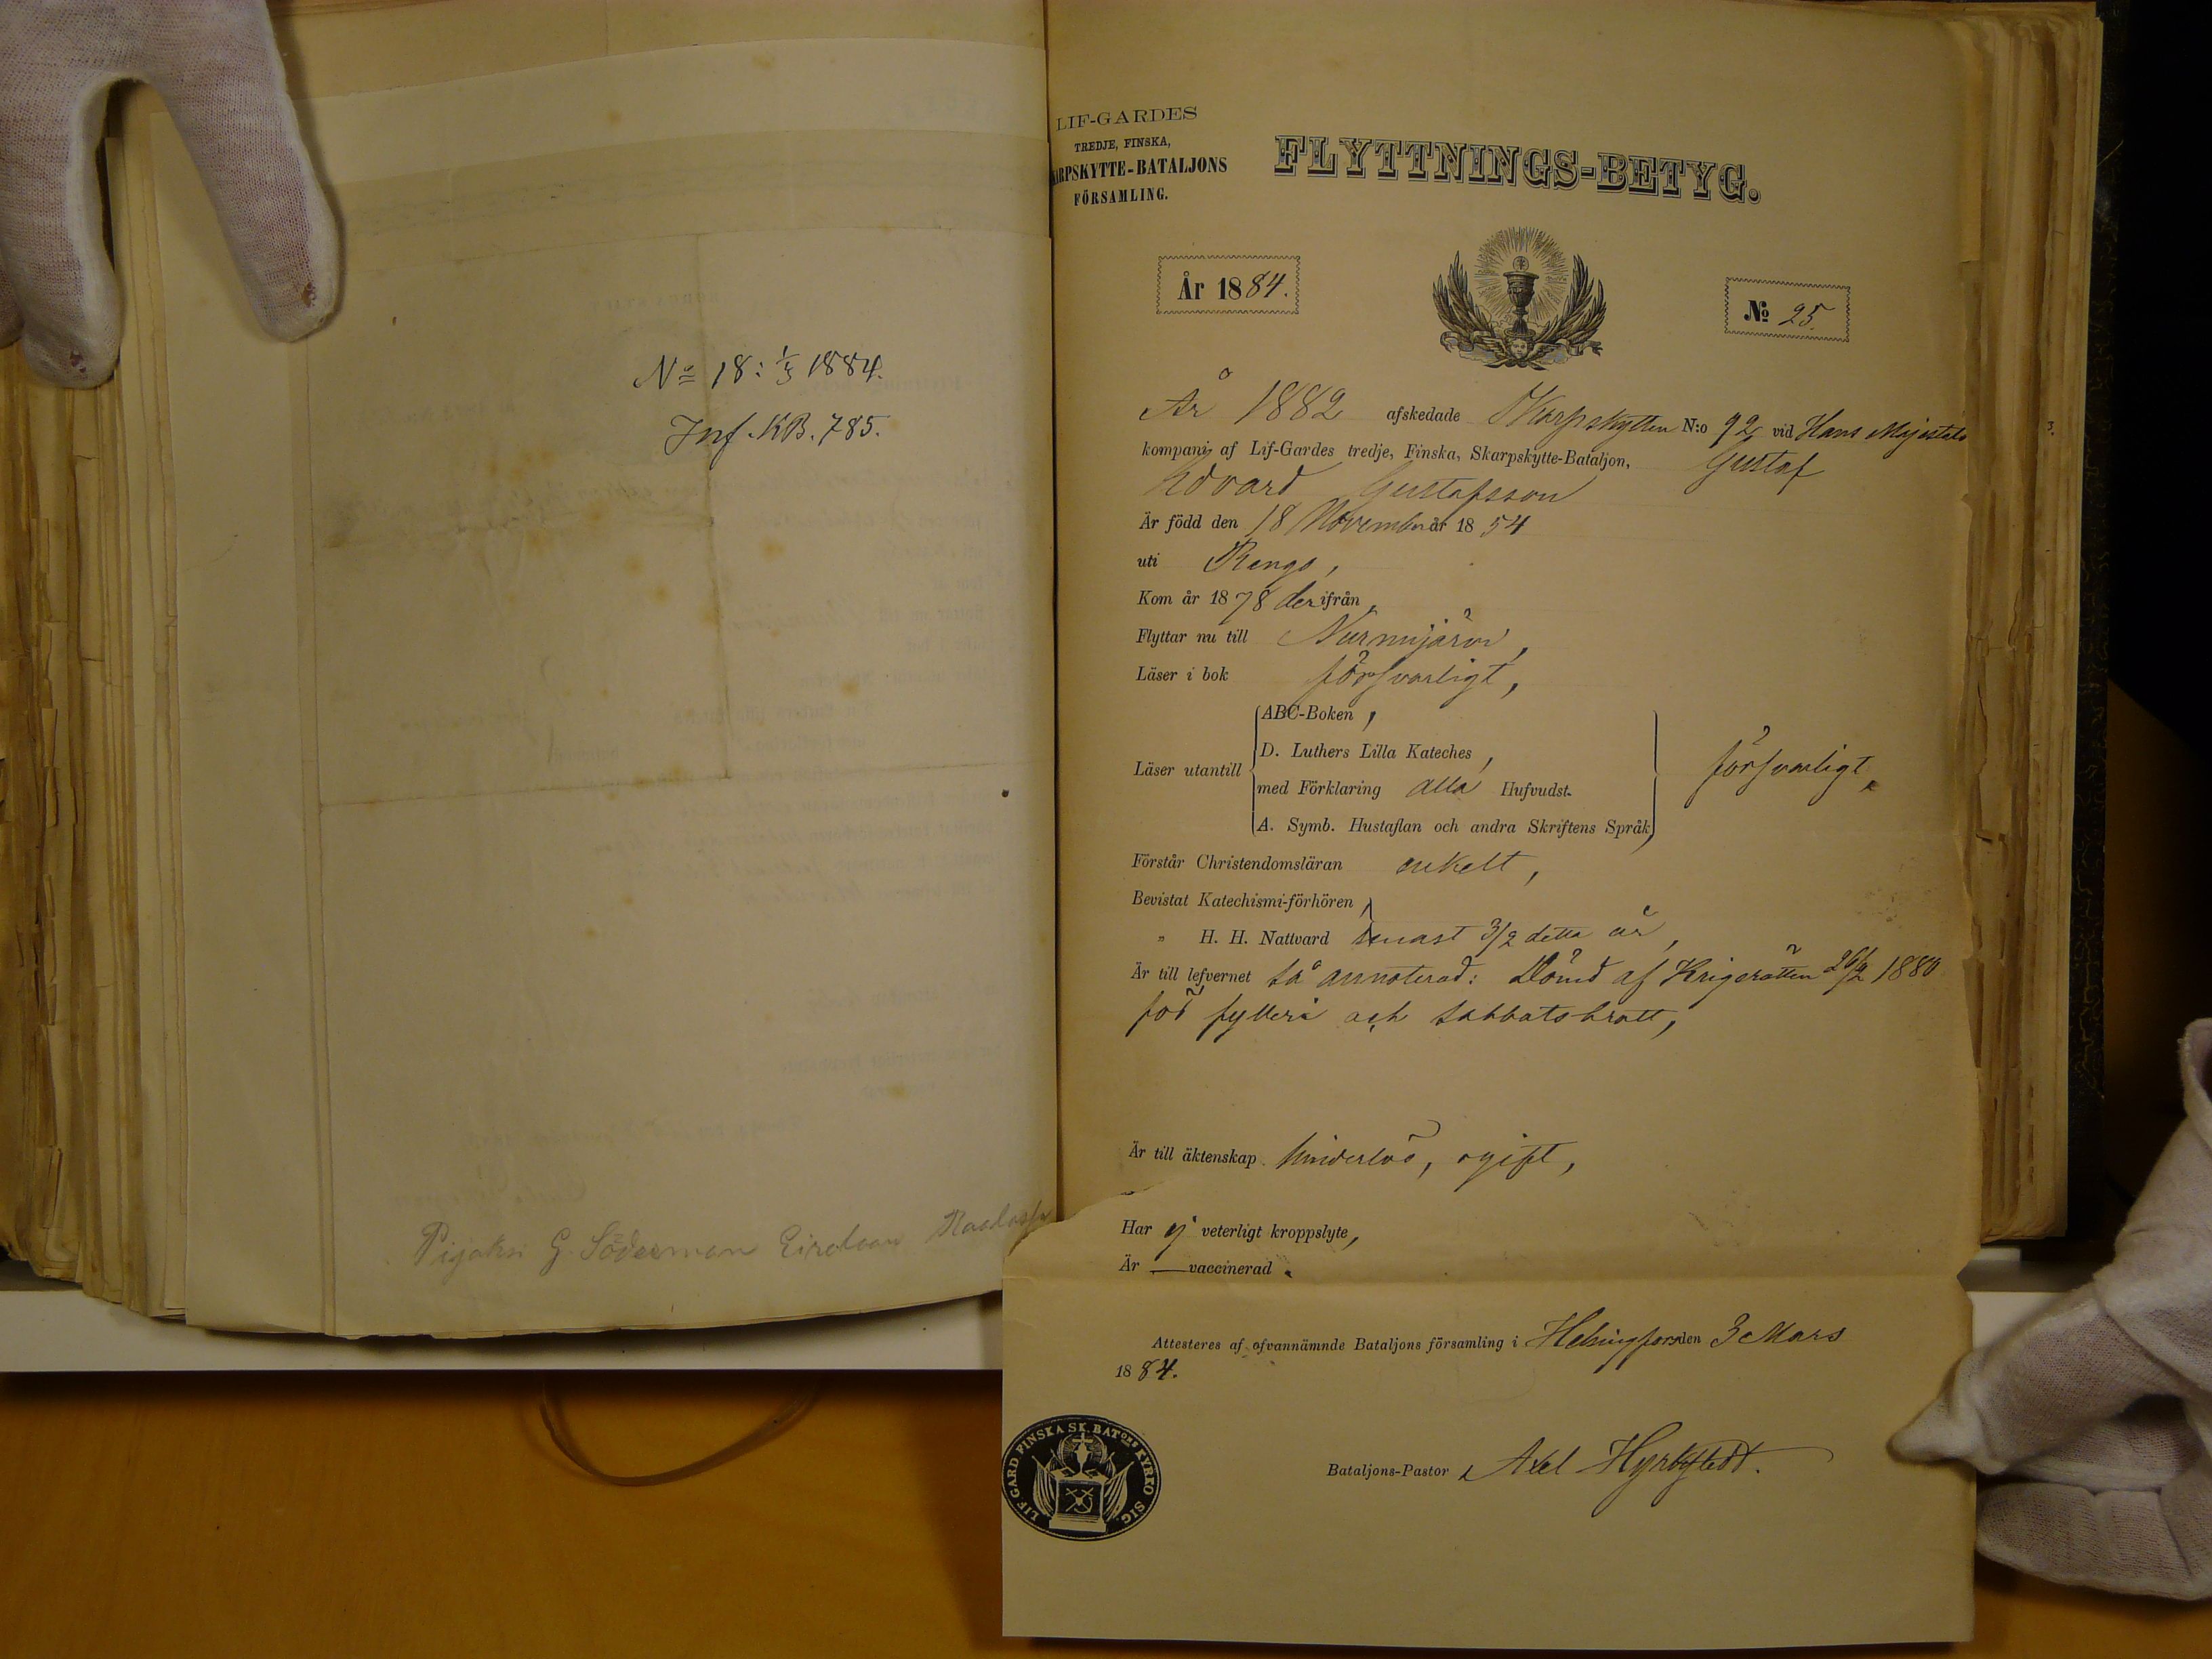 No 18: 1/3 1884.
Inf. KB. 785.
Pijaksi G. Söderman
LIF-GARDES
TREDJE, FINSKA,
SKARPSKYTTE-BATALJONS
FÖRSAMLING.
FLYTTNINGS-BETYG.
År 1884.
No 25.
År 1882 afskedade Skarpskytten N:o 92, vid Hans Majestäts
kompani af Lif-Gardes tredje, Finska, Skarpskytte-Bataljon, Gustaf
Edvard Gustafsson
Är född den 18 November år 1854
uti Rengo,
Kom år 1878 derifrån,
Flyttar nu till Nurmijärvi,
Läser i bok försvarligt,
Läser utantill
ABC-Boken,
D. Luthers Lilla Kateches,
med Förklaring alla Hufvudst.
A. Symb. Hustaflan och andra Skriftens Språk,
försvarligt,
Förstår Christendomsläran enkelt,
Bevistat Katechismi-förhören,
" H. H. Nattvard senast 3/2 detta år,
Är till lefvernet så annoterad: Dömd af Krigsrätten 26/2 1880
för fylleri och sabbatsbrott,
Är till äktenskap hinderlös, ogift,
Har ej veterligt kroppslyte,
Är — vaccinerad.
Attesteres af ofvannämnde Bataljons församling i Helsingfors den 3 Mars
1884.
Bataljons-Pastor, Axel
LIF GARD. FINSKA SK. BATONS KYRKO SIG.